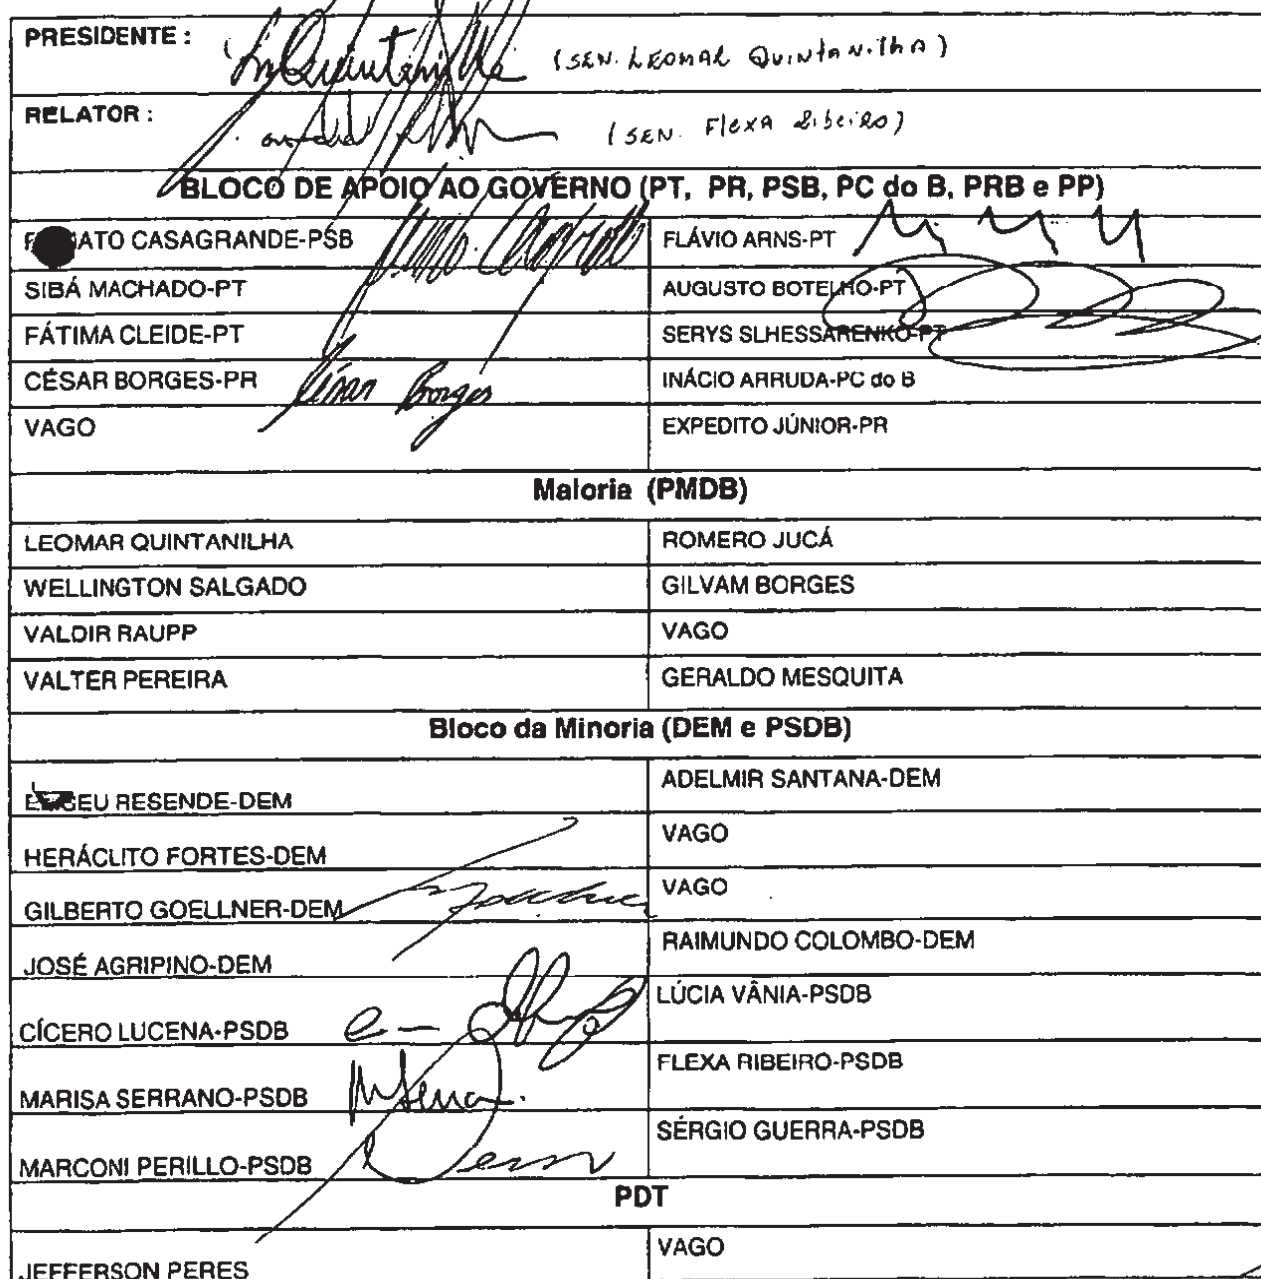 PRESIDENTE :
(SEN. LEOMAR QUINTANILHA)
RELATOR :
(SEN. FLEXA Ribeiro)
BLOCO DE APOIO AO GOVERNO (PT, PR, PSB, PC do B, PRB e PP)
ATO CASAGRANDE-PSB
FLÁVIO ARNS-PT
SIBÁ MACHADO-PT
AUGUSTO BOTELHO-PT
FÁTIMA CLEIDE-PT
SERYS SLHESSARENKO-PT
CÉSAR BORGES-PR
César Borges
INÁCIO ARRUDA-PC do B
VAGO
EXPEDITO JÚNIOR-PR
Maioria (PMDB)
LEOMAR QUINTANILHA
ROMERO JUCÁ
WELLINGTON SALGADO
GILVAM BORGES
VALDIR RAUPP
VAGO
VALTER PEREIRA
GERALDO MESQUITA
Bloco da Minoria (DEM e PSDB)
ADELMIR SANTANA-DEM
EU RESENDE-DEM
VAGO
HERÁCLITO FORTES-DEM
VAGO
GILBERTO GOELLNER-DEM
RAIMUNDO COLOMBO-DEM
JOSÉ AGRIPINO-DEM
LÚCIA VÂNIA-PSDB
CÍCERO LUCENA-PSDB
FLEXA RIBEIRO-PSDB
MARISA SERRANO-PSDB
SÉRGIO GUERRA-PSDB
MARCONI PERILLO-PSDB
PDT
VAGO
JEFFERSON PERES